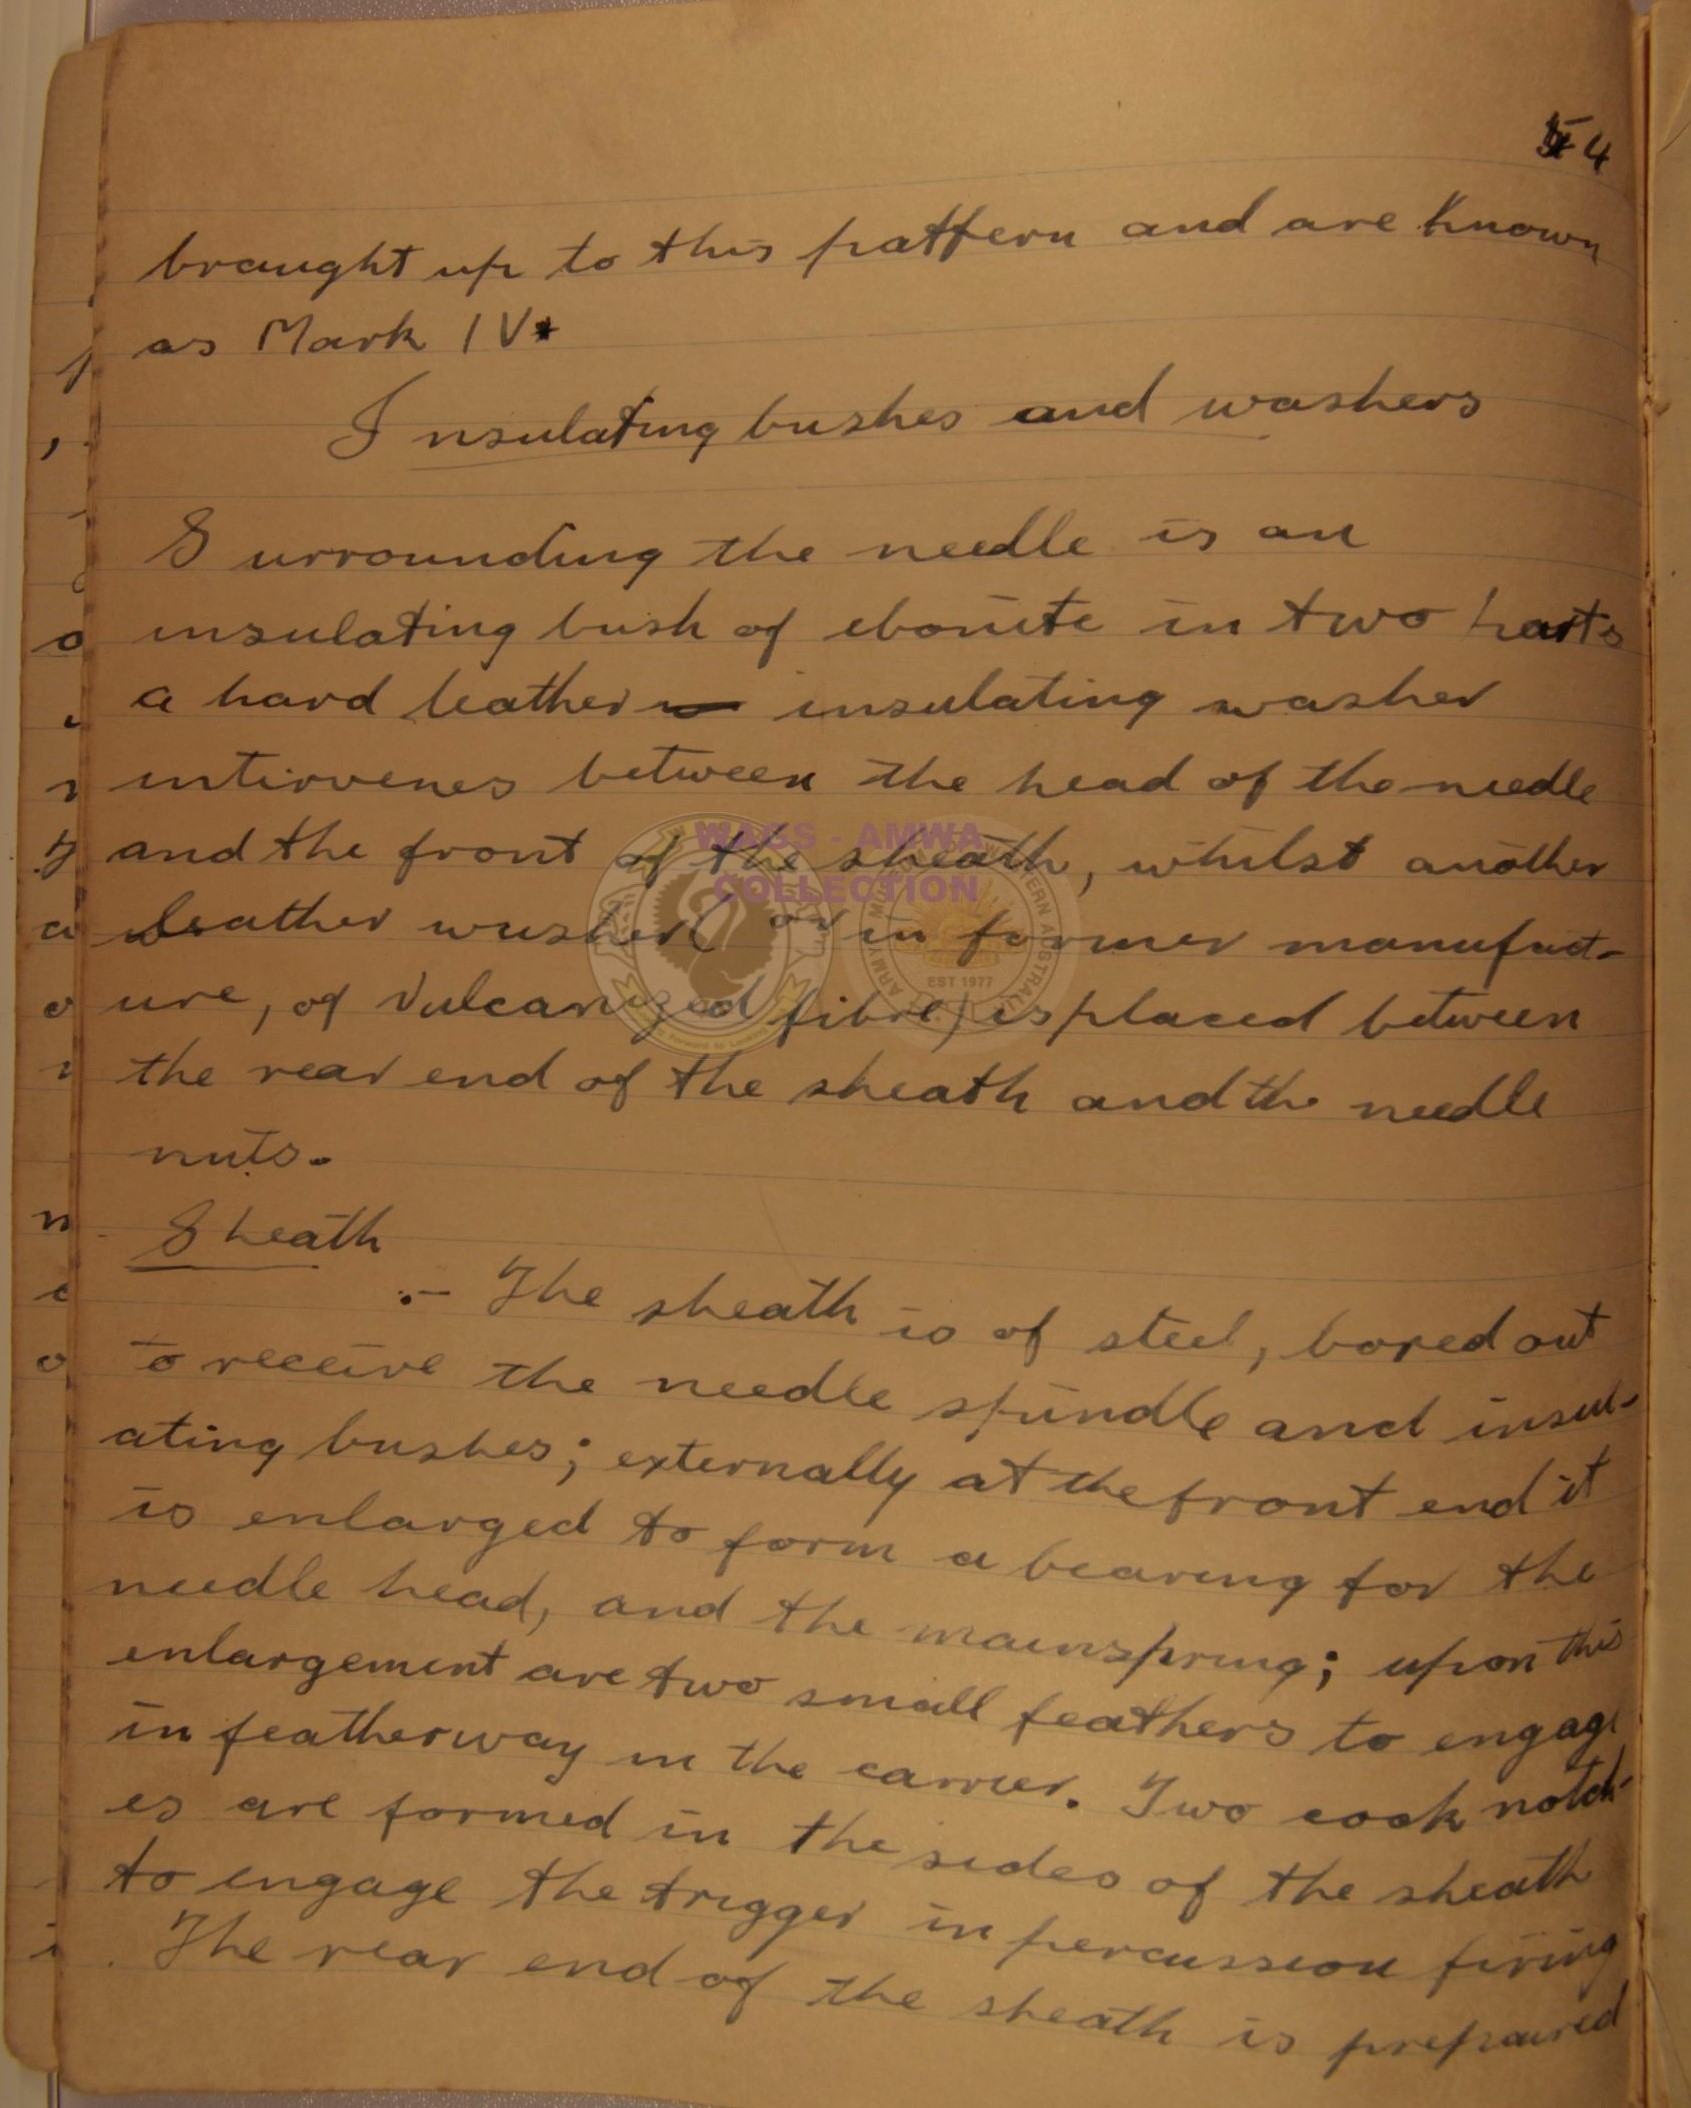 4
brought up to this pattern and are known
as Mark IV*
Insulating bushes and washers
Surrounding the needle is an
insulating bush of ebonite in two parts
a hard leather insulating washer
intervenes between the head of the needle
and the front of the sheath, whilst another
leather washer (or in former manufact-
ure, of Vulcanized fibre) is placed between
the rear end of the sheath and the needle
nuts.
Sheath
:- The sheath is of steel, bored out
to receive the needle spindle and insul-
ating bushes; externally at the front end it
is enlarged to form a bearing for the
needle head, and the mainspring; upon this
enlargement are two small feathers to engage
in featherway in the carrier. Two cock notch-
es are formed in the sides of the sheath
to engage the trigger in percussion firing
. The rear end of the sheath is prepared
WAGS - AMWA
COLLECTION
EST 1977